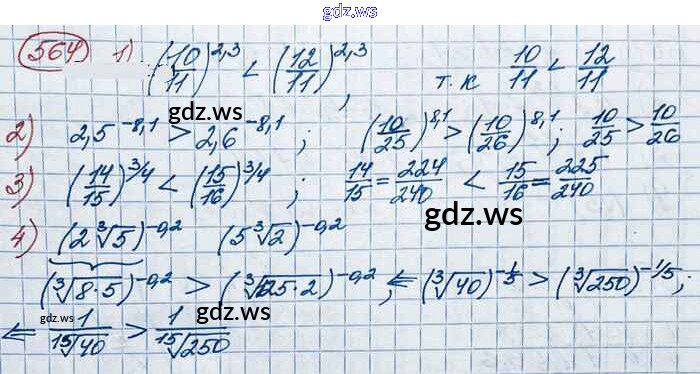 gdz.ws
564 1) (10/11)^2,3 < (12/11)^2,3, т.к 10/11 < 12/11
gdz.ws
2) 2,5^-8,1 > 2,6^-8,1; (10/25)^8,1 > (10/26)^8,1; 10/25 > 10/26
3) (14/15)^3/4 < (15/16)^3/4; 14/15 = 224/240 < 15/16 = 225/240
gdz.ws
4) (2∛5)^-0,2 (5∛2)^-0,2
(∛8·5)^-0,2 > (∛125·2)^-0,2, ⇐ (∛40)^-1/5 > (∛250)^-1/5;
gdz.ws gdz.ws gdz.ws
⇐ 1/¹⁵√40 > 1/¹⁵√250